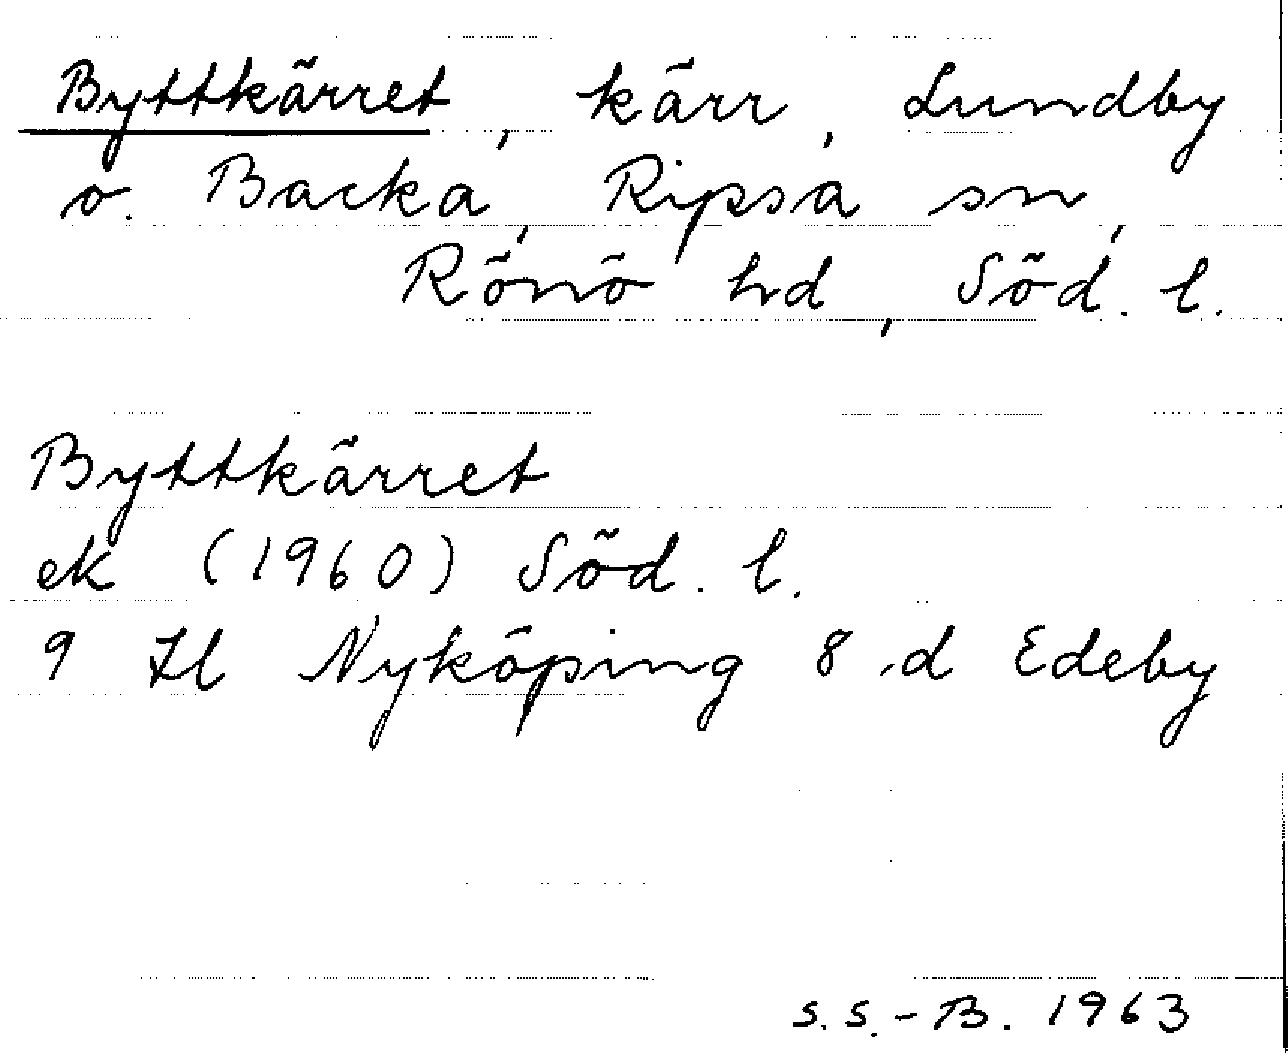 Byttkärret, kärr, Lundby
o. Backa, Ripsa sn,
Rönö hd, Söd. l.
Byttkärret
ek (1960) Söd. l.
9 H Nyköping 8 d Edeby
s.s.-B. 1963